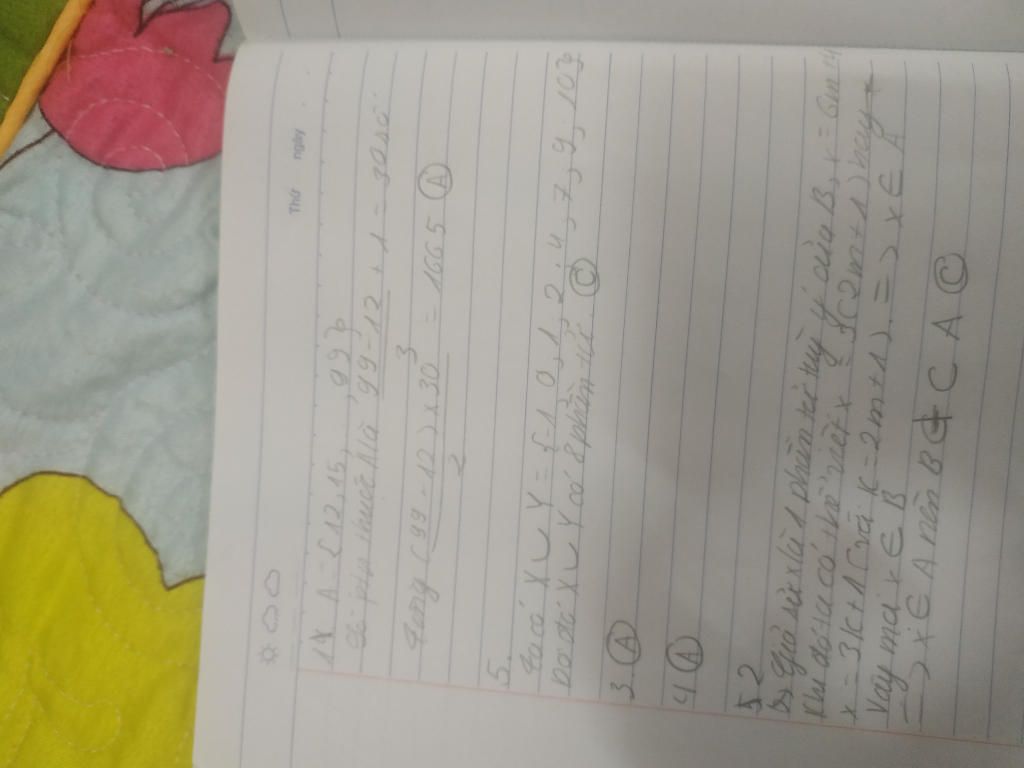 Thứ ngày
14 A = {12, 15, 99}
Số ptử thuộc A là 99-12 + 1 = 30 số
3
Tổng (99 + 12) x 30 = 1665 (A)
2
5.
Ta có X ∪ Y = {-1, 0, 1, 2, 4, 7, 9, 10}
Do đó X ∪ Y có 8 phần tử. (C)
3. (A)
4 (A)
5.2
Giả sử x là 1 phần tử tuỳ ý của B, x = 6m + 4
Khi đó ta có thể viết x = 3(2m + 1)
x = 3k + 1 k = 2m + 1). => x ∈ A
Vậy mà x ∈ B
=> x ∈ A nên B ⊂ A (C)